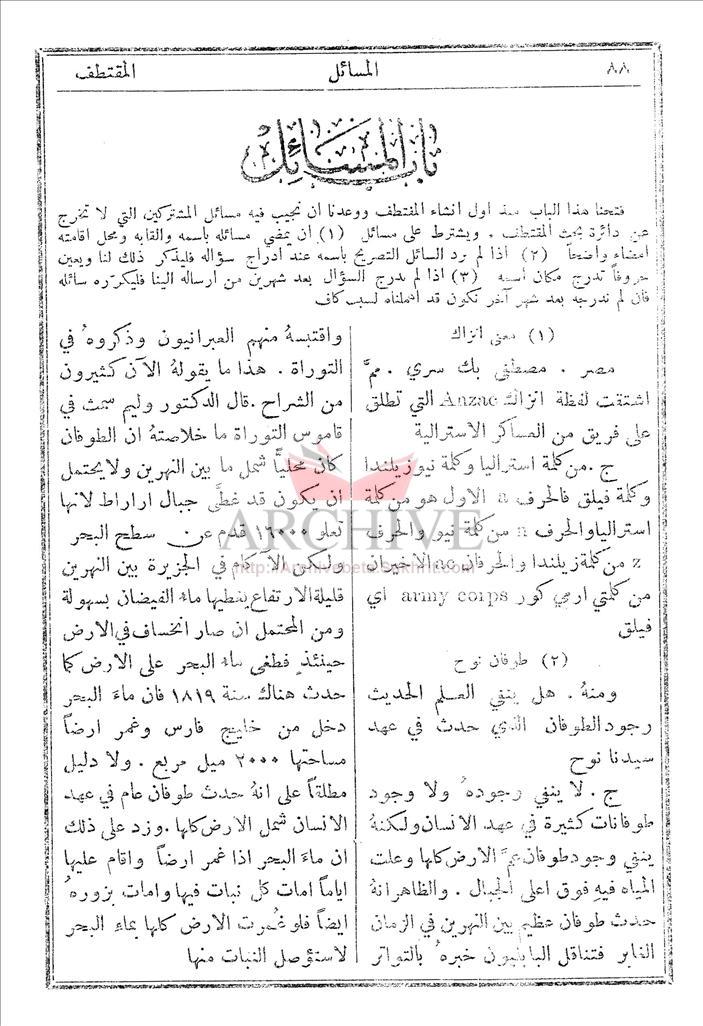 ٨٨
المسائل
المقتطف
باب المسائل
فتحنا هذا الباب منذ اول انشاء المقتطف ووعدنا ان نجيب فيه مسائل المشتركين التي لا تخرج
عن دائرة بحث المقتطف . ويشترط على مسائل (١) ان يمضي مسائله باسمه والقابه ومحل اقامته
امضاء واضحاً (٢) اذا لم يرد السائل التصريح باسمه عند ادراج سؤاله فليذكر ذلك لنا ويعين
حروفاً تدرج مكان اسمه (٣) اذا لم ندرج السؤال بعد شهرين من ارساله الينا فليكرّره سائله
فان لم ندرجه بعد شهر آخر نكون قد اهملناه لسبب كاف
(١) معنى انزاك
مصر . مصطفى بك سري . ممَّ
اشتقت لفظة انزاك Anzac التي تطلق
على فريق من العساكر الاسترالية
ج . من كلمة استراليا وكلمة نيوزيلندا
وكلمة فيلق فالحرف a الاول هو من كلمة
استراليا والحرف n من كلمة نيو والحرف
z من كلمة زيلندا والحرفان ac الاخيران
من كلمتي ارمي كور army corps اي
فيلق
(٢) طوفان نوح
ومنهُ . هل ينفي العلم الحديث
وجود الطوفان الذي حدث في عهد
سيدنا نوح
ج . لا ينفي وجودهُ ولا وجود
طوفانات كثيرة في عهد الانسان ولكنهُ
ينفي وجود طوفان عمَّ الارض كلها وعلت
المياه فيهِ فوق اعلى الجبال . والظاهر انهُ
حدث طوفان عظيم بين النهرين في الزمان
الغابر فتناقل البابليون خبرهُ بالتواتر
واقتبسهُ منهم العبرانيون وذكروهُ في
التوراة . هذا ما يقولهُ الآن كثيرون
من الشراح . قال الدكتور وليم سمث في
قاموس التوراة ما خلاصتهُ ان الطوفان
كان محليًّا شمل ما بين النهرين ولا يحتمل
ان يكون قد غطَّى جبال اراراط لانها
تعلو ١٦٠٠٠ قدم عن سطح البحر
ولكن الآكام في الجزيرة بين النهرين
قليلة الارتفاع يغطيها ماء الفيضان بسهولة
ومن المحتمل ان صار انخساف في الارض
حينئذٍ فطغى ماء البحر على الارض كما
حدث هناك سنة ١٨١٩ فان ماء البحر
دخل من خليج فارس وغمر ارضاً
مساحتها ٢٠٠٠ ميل مربع . ولا دليل
مطلقاً على انهُ حدث طوفان عام في عهد
الانسان شمل الارض كلها . وزد على ذلك
ان ماء البحر اذا غمر ارضاً واقام عليها
اياماً امات كل نبات فيها وامات بزورهُ
ايضاً فلو غُمرت الارض كلها بماء البحر
لاستؤصل النبات منها
ARCHIVE